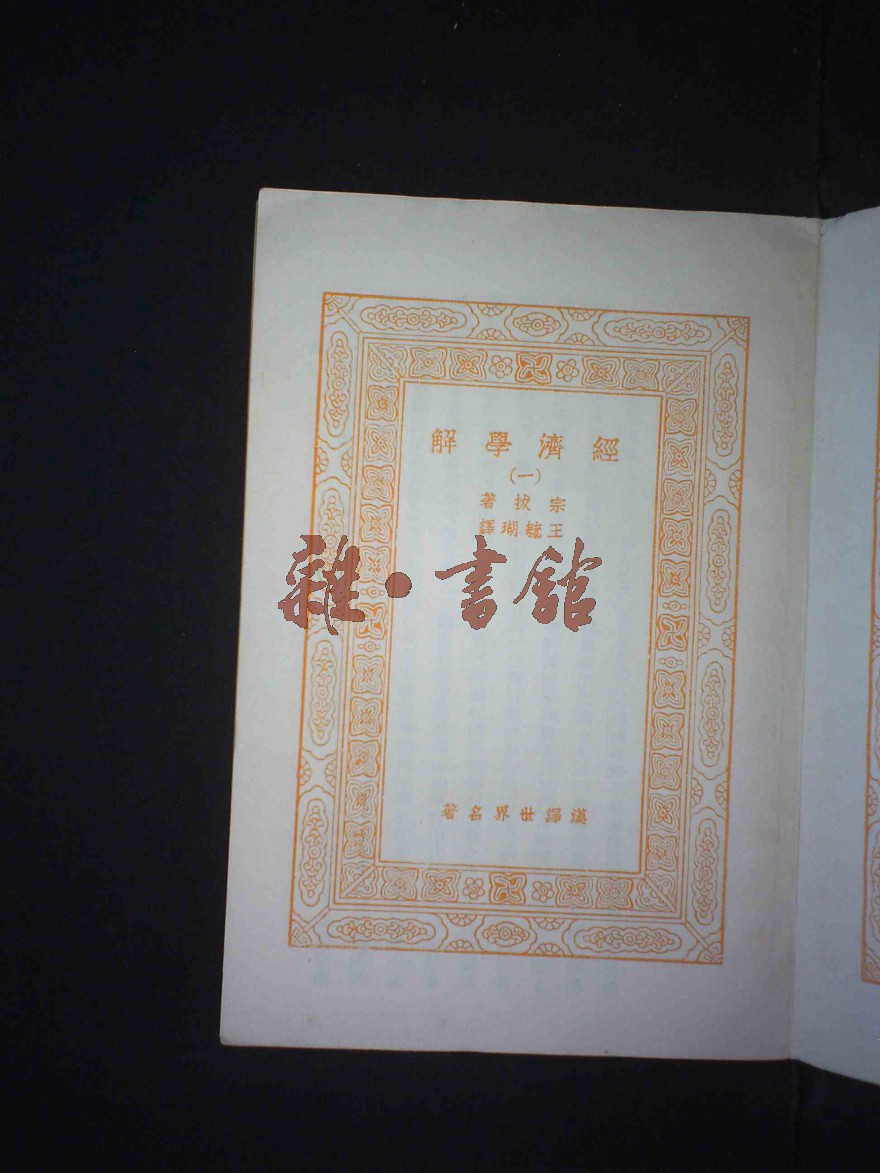 經濟學解
(一)
宗拔著
王毓瑚譯
雜·書館
漢譯世界名著